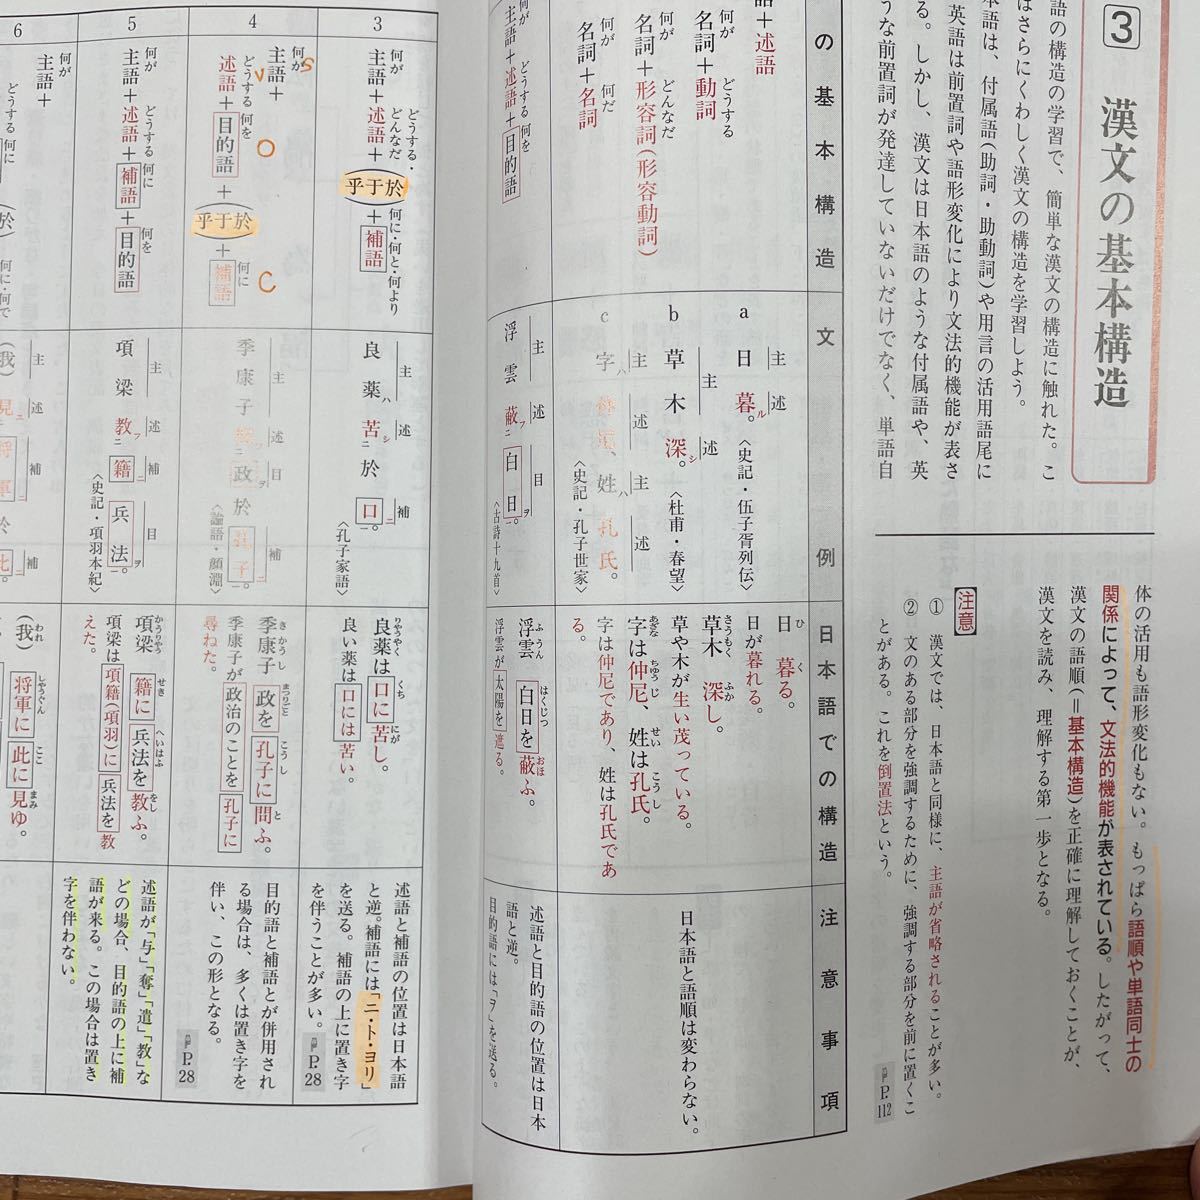 3 漢文の基本構造
語の構造の学習で、簡単な漢文の構造に触れた。こ
はさらにくわしく漢文の構造を学習しよう。
本語は、付属語(助詞・助動詞)や用言の活用語尾に
英語は前置詞や語形変化により文法的機能が表さ
る。しかし、漢文は日本語のような付属語や、英
うな前置詞が発達していないだけでなく、単語自
体の活用も語形変化もない。もっぱら語順や単語同士の
関係によって、文法的機能が表されている。したがって、
漢文の語順(=基本構造)を正確に理解しておくことが、
漢文を読み、理解する第一歩となる。
注意
① 漢文では、日本語と同様に、主語が省略されることが多い。
② 文のある部分を強調するために、強調する部分を前に置くこ
とがある。これを倒置法という。
P.112
の基本構造
文例
日本語での構造
注意事項
語+述語
何が どうする
名詞+動詞
何が どんなだ
名詞+形容詞(形容動詞)
何が 何だ
名詞+名詞
a 日暮ル。
主 述
〈史記・伍子胥列伝〉
b 草木深シ。
主 述
〈杜甫・春望〉
c 字ハ仲尼、姓ハ孔氏。
主 述 主 述
〈史記・孔子世家〉
日 暮る。
日が暮れる。
草木 深し。
草や木が生い茂っている。
字は仲尼、姓は孔氏。
字は仲尼であり、姓は孔氏であ
る。
日本語と語順は変わらない。
何が どうする 何を
主語+述語+目的語
主 述 目
浮雲蔽フニ白日ヲ一。
〈古詩十九首〉
浮雲 白日を蔽ふ。
浮雲が太陽を遮る。
述語と目的語の位置は日本
語と逆。
目的語には「ヲ」を送る。
3
何が どうする・どんなだ 何に・何と・何より
主語+述語+(乎于於)+補語
主 述 補
良薬ハ苦シニ於口ニ一。
〈孔子家語〉
良薬は口に苦し。
良い薬は口には苦い。
述語と補語の位置は日本語
と逆。補語には「ニ・ト・ヨリ」
を送る。補語の上に置き字
を伴うことが多い。
P.28
4
何が S
主語+
どうする 何を 何に
述語+目的語+(乎于於)+補語
V O C
主 述 目 補
季康子問フニ政ヲ於孔子ニ一。
〈論語・顔淵〉
季康子 政を孔子に問ふ。
季康子が政治のことを孔子に
尋ねた。
目的語と補語とが併用され
る場合は、多くは置き字を
伴い、この形となる。
P.28
5
何が どうする 何に 何を
主語+述語+補語+目的語
主 述 補 目
項梁教フニ籍ニ兵法ヲ一。
〈史記・項羽本紀〉
項梁 籍に兵法を教ふ。
項梁は項籍(項羽)に兵法を教
えた。
述語が「与」「奪」「遺」「教」な
どの場合、目的語の上に補
語が来る。この場合は置き
字を伴わない。
6
何が
主語+
どうする 何に 何に・何で
主 述 補 補
(我)見ニ将軍
(我)将軍に此に見ゆ。